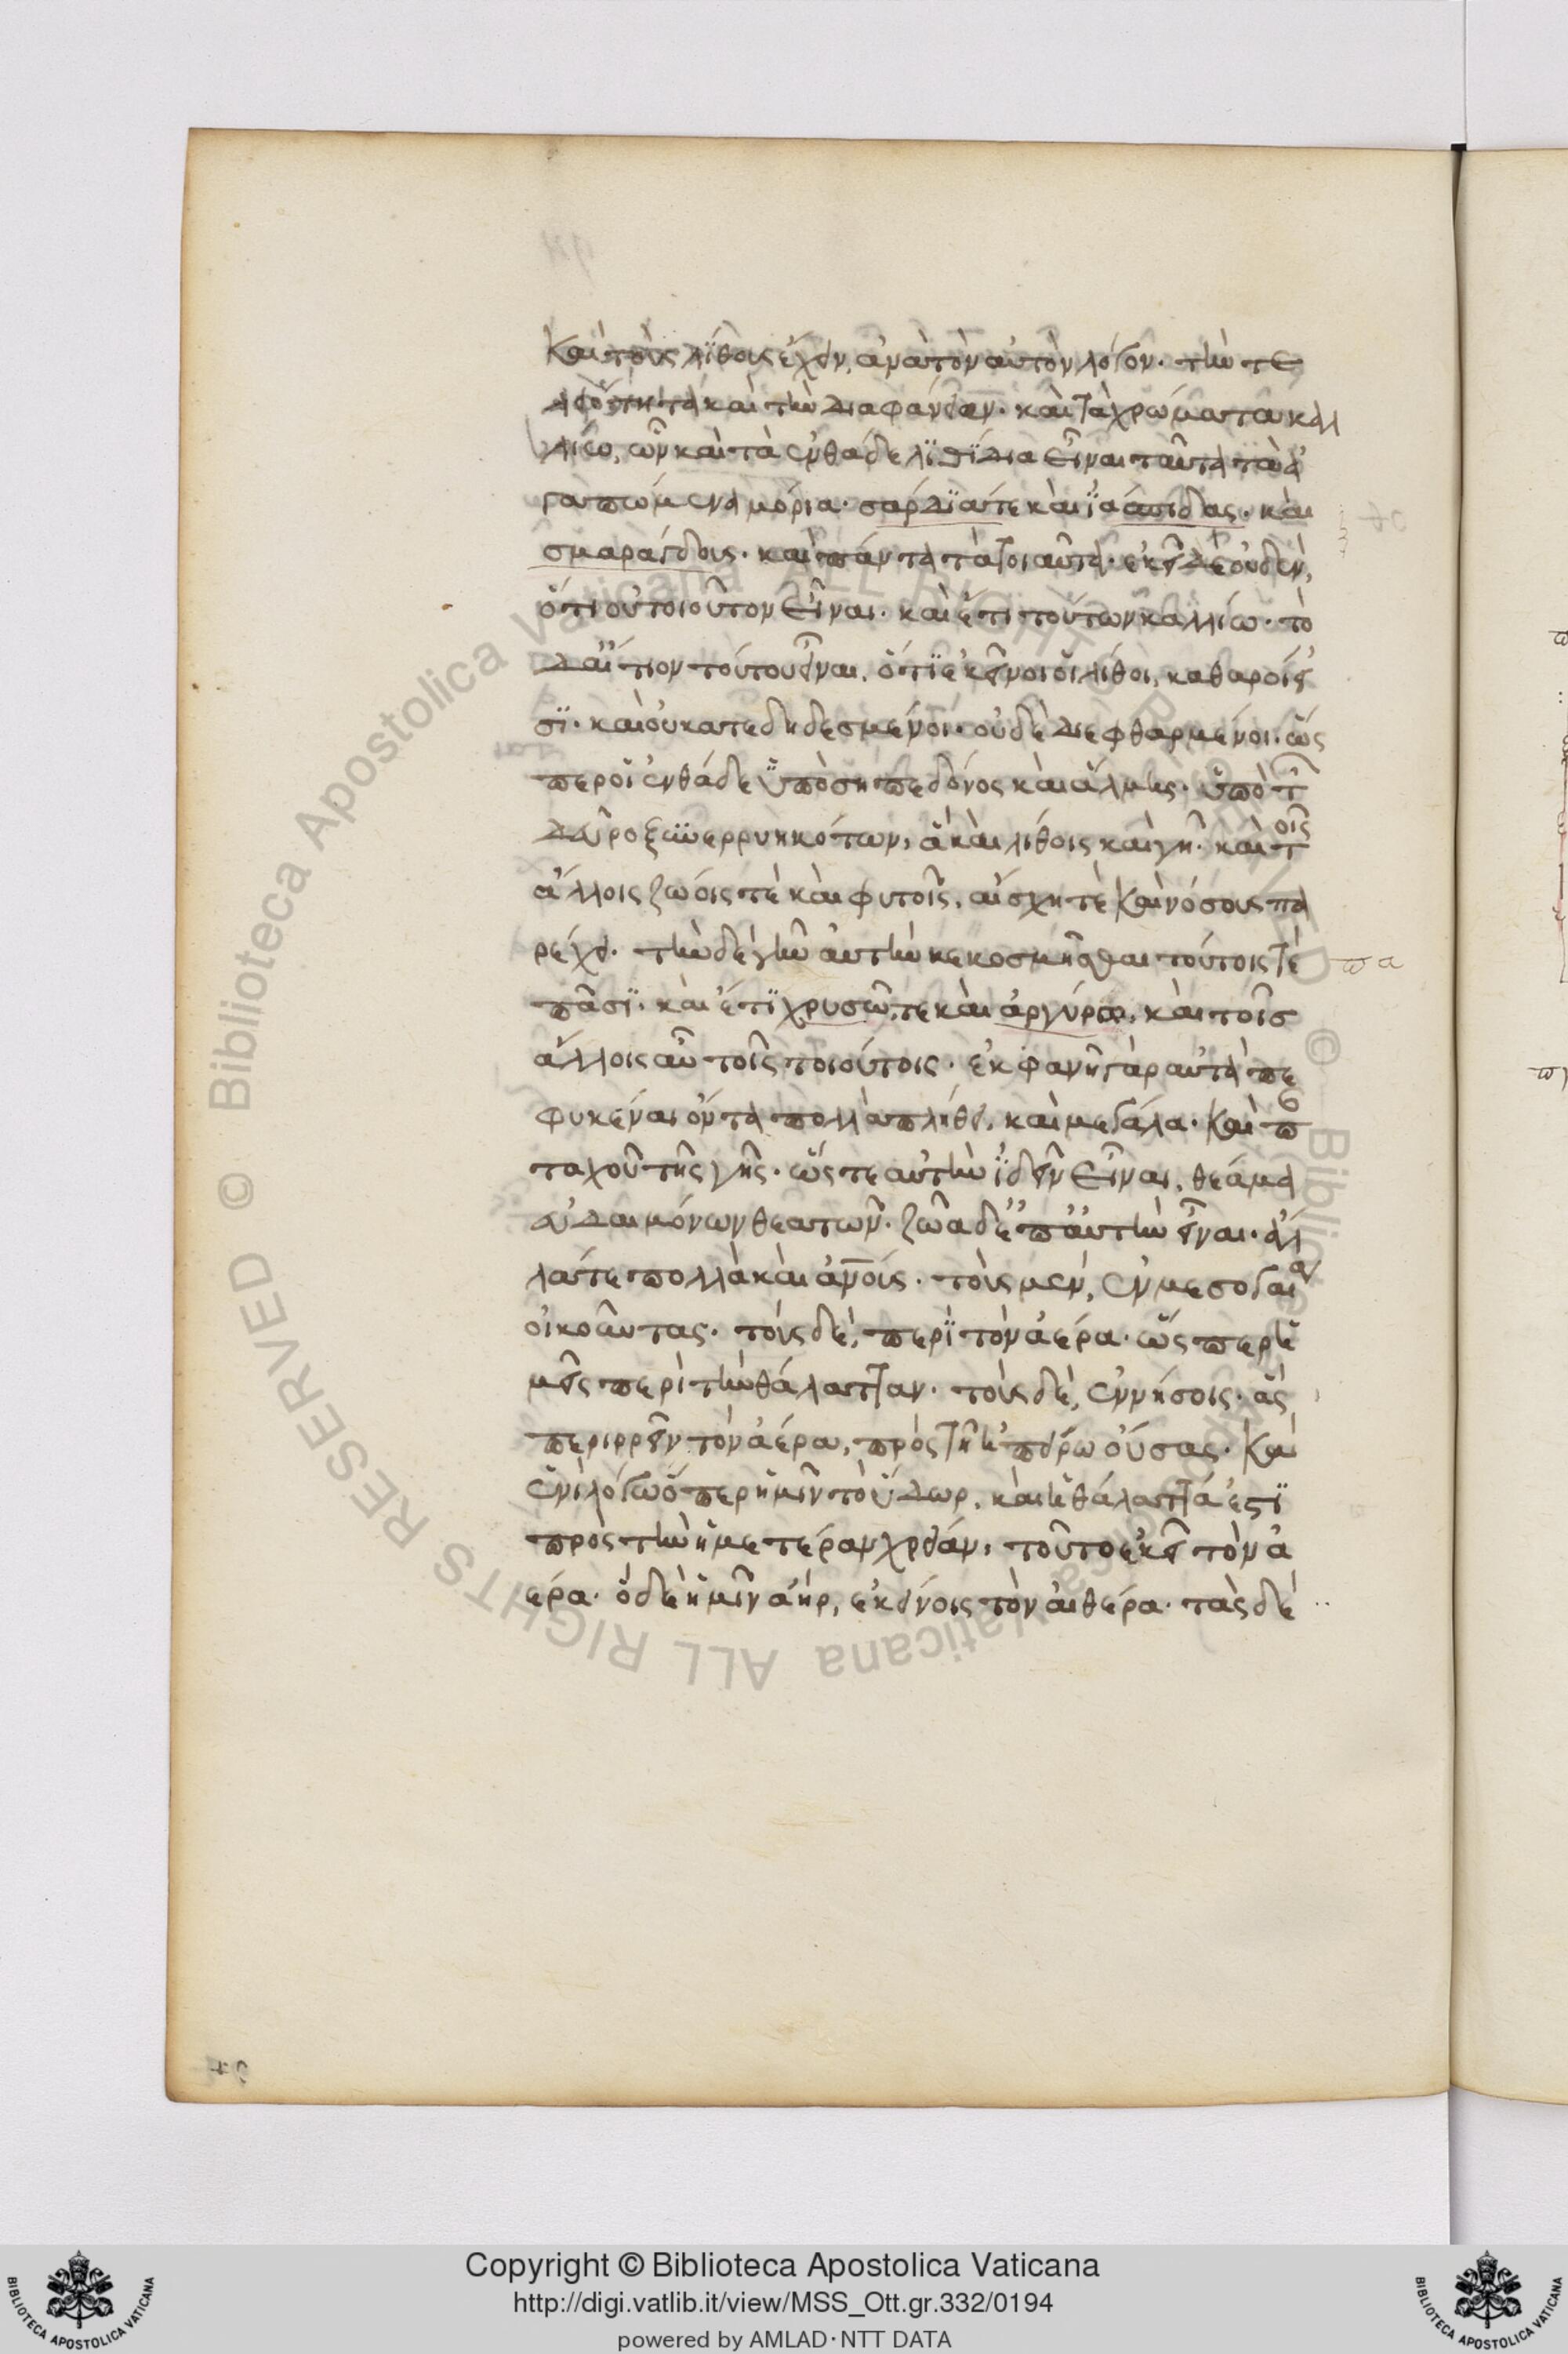 καὶ τοὺς λίθους ἔχειν, ἀνὰ τὸν αὐτὸν λόγον· τὴν τε
λειότητα καὶ τὴν διαφάνειαν· καὶ τὰ χρώματα καλ
λίω, ὧν καὶ τὰ ἐνθάδε λϊθίδια εἶναι ταῦτα τὰ ἀ
γαπώμενα μόρια· σάρδϊά τε καὶ ϊάσπιδας· καὶ
σμαράγδους· καὶ πάντα τὰ τοιαῦτα· ἐκεῖ δὲ οὐδὲν,
ὅτι οὐ τοιοῦτον εἶναι· καὶ ἔτι τούτων καλλίω· τὸ
δ' αἴτιον τούτου εἶναι, ὅτϊ ἐκεῖνοι οἱ λίθοι, καθαροί εἰ
σϊ· καὶ οὐ κατεδηδεσμένοι· οὐδὲ διεφθαρμένοι· ὥς
περ οἱ ἐνθάδε ὑπὸ σηπεδόνος καὶ ἅλμης· ὑπὸ τῶν
δεῦρο ξυνερρυηκότων, ἃ καὶ λίθοις καὶ γῇ· καὶ τοῖς
ἄλλοις ζώοις τὲ καὶ φυτοῖς, αἴσχη τὲ καὶ νόσους πα
ρέχει· τὴν δὲ γῆν αὐτὴν κεκοσμῆσθαι τούτοις τὲ
πᾶσϊ· καὶ ἔτϊ χρυσῶ, τε καὶ ἀργύρω, καὶ τοῖς
ἄλλοις αὖ τοῖς τοιούτοις· ἐκφανῆ γὰρ αὐτὰ πε
φυκέναι ὄντα πολλὰ πλήθει, καὶ μεγάλα· καὶ πολ
ταχοῦ τῆς γῆς· ὥς τε αὐτὴν ἰδεῖν εἶναι, θέαμα
εὐδαιμόνων θεατῶν· ζῶα δὲ ἐπ' αὐτὴν εἶναι· ἄλ
λα τε πολλὰ καὶ ἀνοις· τοὺς μὲν, ἐν μεσογαία
οἰκοῦντας· τοὺς δὲ, περὶ τὸν ἀέρα· ὥς περ ἡ
μεῖς περὶ τὴν θάλατταν· τοὺς δὲ, ἐν νήσοις· ἃς
περιρρεῖν τὸν ἀέρα, πρὸς τῆ ἠπείρω οὔσας· καὶ
ἑνὶ λόγω ὅπερ ἡμῖν τὸ ὕδωρ, καὶ ἡ θάλαττά ἐστϊ
πρὸς τὴν ἡμετέραν χρείαν, τοῦτο ἐκεῖ τὸν ἀ
έρα· ὃ δὲ ἡμῖν ἀὴρ, ἐκείνοις τὸν αἰθέρα· τὰς δὲ
Copyright © Biblioteca Apostolica Vaticana
http://digi.vatlib.it/view/MSS_Ott.gr.332/0194
powered by AMLAD·NTT DATA